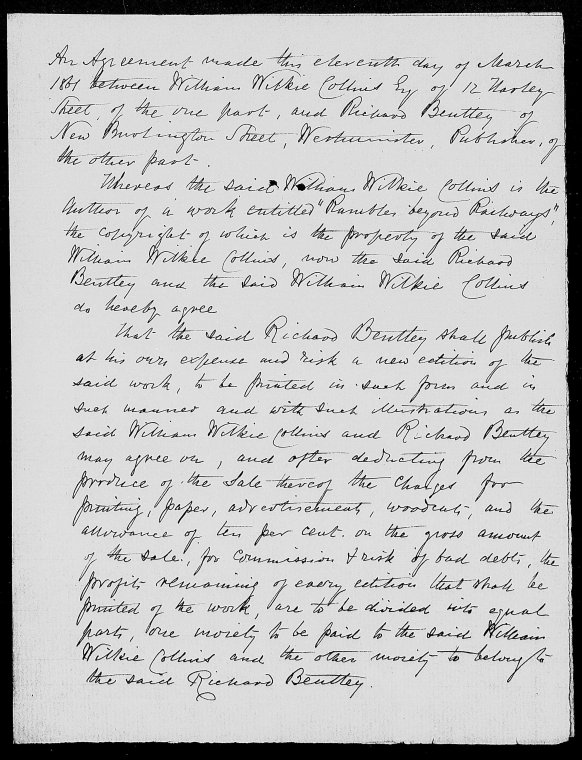 An Agreement made this eleventh day of March
1861 between William Wilkie Collins Esq of 12 Harley
Street, of the one part, and Richard Bentley of
New Burlington Street, Westminster, Publisher, of
the other part.
Whereas the said William Wilkie Collins is the
Author of a work entitled "Rambles beyond Railways",
the copyright of which is the property of the said
William Wilkie Collins, now the said Richard
Bentley and the said William Wilkie Collins
do hereby agree
That the said Richard Bentley shall publish
at his own expense and risk a new edition of the
said work, to be printed in such form and in
such manner and with such illustrations as the
said William Wilkie Collins and Richard Bentley
may agree on, and after deducting from the
produce of the Sale thereof the charges for
printing, paper, advertisements, woodcuts, and the
allowance of ten per cent. on the gross amount
of the sale, for commission & risk of bad debts, the
profits remaining of every edition that shall be
printed of the work, are to be divided into equal
parts, one moiety to be paid to the said William
Wilkie Collins and the other moiety to belong to
the said Richard Bentley.